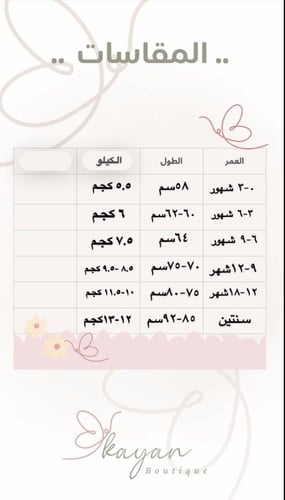 .. المقاسات ..
العمر الطول الكيلو
٠-٣ شهور ٥٨سم ٥.٥ كجم
٣-٦ شهور ٦٠-٦٢سم ٦ كجم
٦-٩ شهور ٦٤سم ٧.٥ كجم
٩-١٢شهر ٧٠-٧٥سم ٨.٥-٩.٥ كجم
١٢-١٨شهر ٧٥-٨٠سم ١٠-١١.٥ كجم
سنتين ٨٥-٩٢سم ١٢-١٣كجم
kayan
Boutique